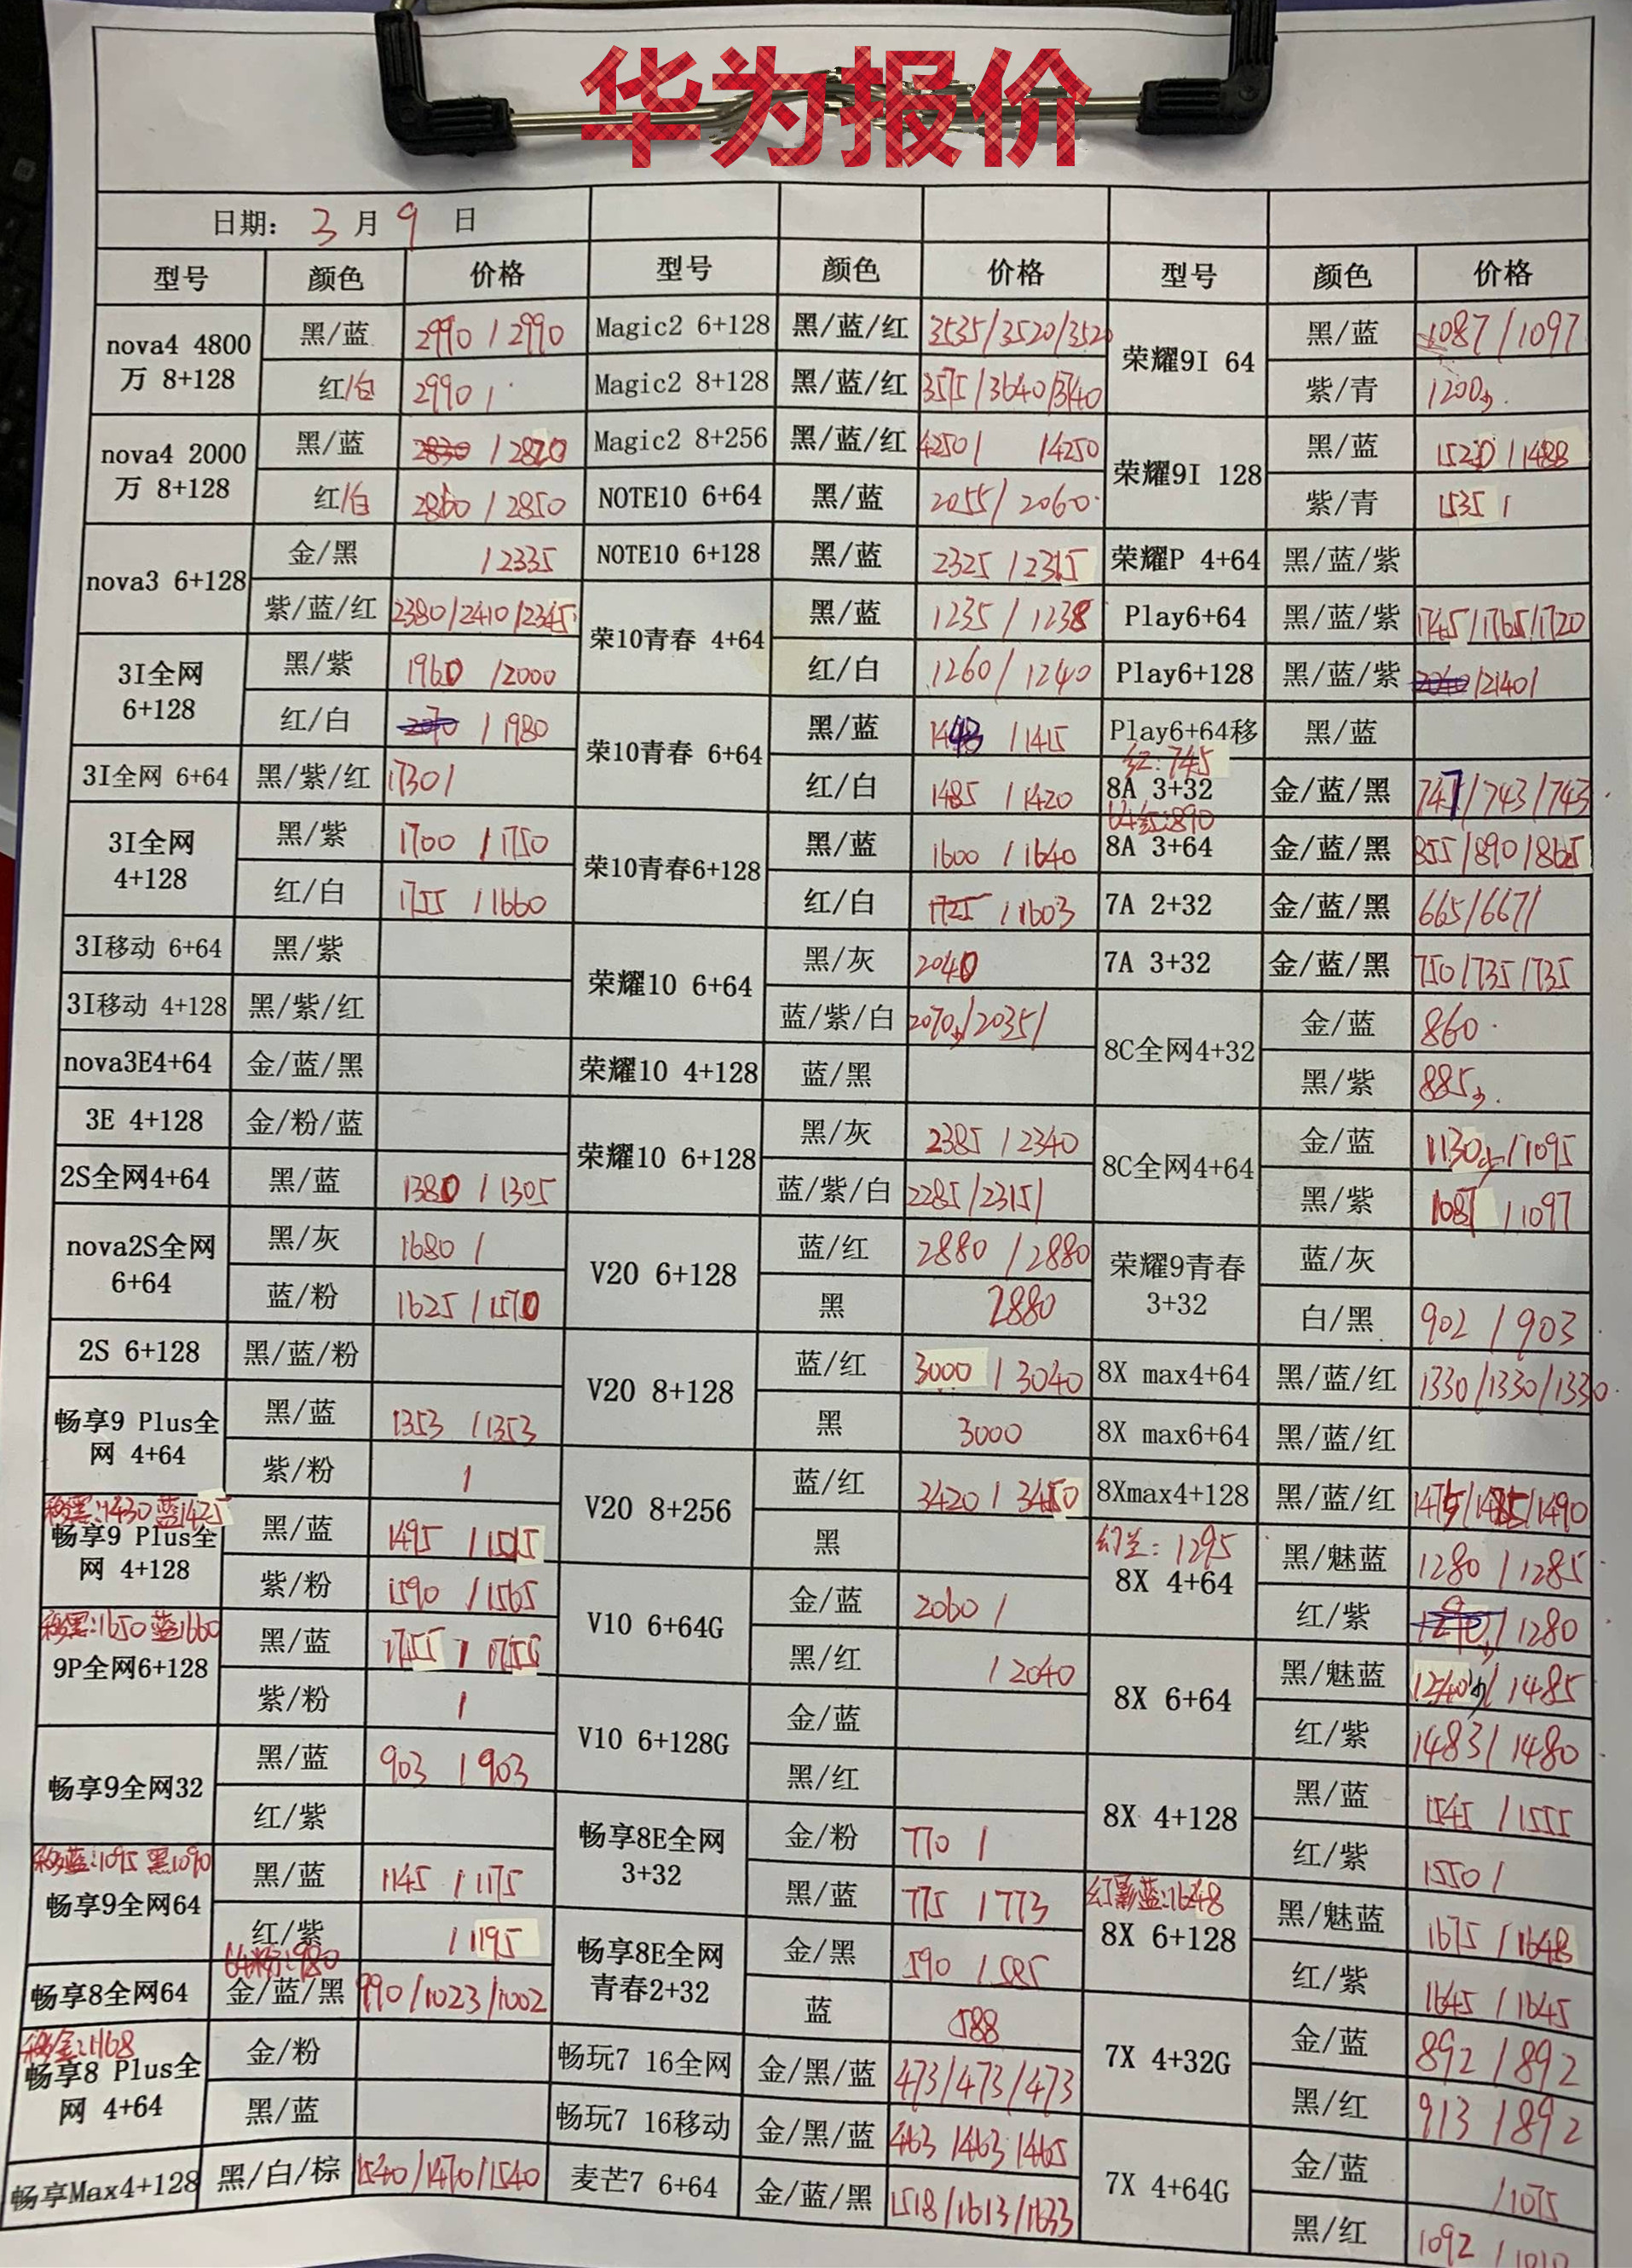 华为报价
日期： 3 月 9 日
型号 颜色 价格 型号 颜色 价格 型号 颜色 价格
nova4 4800万 8+128 黑/蓝 2990 / 2990
红/白 2990 /
nova4 2000万 8+128 黑/蓝 2830 / 2820
红/白 2860 / 2850
nova3 6+128 金/黑 / 2335
紫/蓝/红 2380/2410/2345
3I全网 6+128 黑/紫 1960 /2000
红/白 / 1980
3I全网 6+64 黑/紫/红 1730/
3I全网 4+128 黑/紫 1700 / 1750
红/白 1755 / 1660
3I移动 6+64 黑/紫
3I移动 4+128 黑/紫/红
nova3E4+64 金/蓝/黑
3E 4+128 金/粉/蓝
2S全网4+64 黑/蓝 1380 / 1305
nova2S全网 6+64 黑/灰 1680 /
蓝/粉 1625 / 1570
2S 6+128 黑/蓝/粉
畅享9 Plus全网 4+64 黑/蓝 1353 / 1353
紫/粉 /
移黑:1430 蓝1425
畅享9 Plus全网 4+128 黑/蓝 1495 / 1515
紫/粉 1590 / 1565
移黑:1650 蓝1660
9P全网6+128 黑/蓝 1755 / 1755
紫/粉 /
畅享9全网32 黑/蓝 903 / 903
红/紫
移蓝:1095 黑1090
畅享9全网64 黑/蓝 1145 / 1175
红/紫 / 1195
64粉:980
畅享8全网64 金/蓝/黑 990/1023/1002
移金:1168
畅享8 Plus全网 4+64 金/粉
黑/蓝
畅享Max4+128 黑/白/棕 1540/1470/1540
Magic2 6+128 黑/蓝/红 3535/3520/3520
Magic2 8+128 黑/蓝/红 3575/3640/3740
Magic2 8+256 黑/蓝/红 4250/ /4250
NOTE10 6+64 黑/蓝 2055/ 2060
NOTE10 6+128 黑/蓝 2325 /2315
荣10青春 4+64 黑/蓝 1235 / 1238
红/白 1260/ 1240
荣10青春 6+64 黑/蓝 1443 / 1415
红/白 1485 / 1420
荣10青春6+128 黑/蓝 1600 / 1640
红/白 1725 / 1603
荣耀10 6+64 黑/灰 2040
蓝/紫/白 2070少/2035/
荣耀10 4+128 蓝/黑
荣耀10 6+128 黑/灰 2385 / 2340
蓝/紫/白 2285/2315/
V20 6+128 蓝/红 2880 / 2880
黑 2880
V20 8+128 蓝/红 3000 / 3040
黑 3000
V20 8+256 蓝/红 3420 / 3450
黑
V10 6+64G 金/蓝 2060 /
黑/红 / 2040
V10 6+128G 金/蓝
黑/红
畅享8E全网 3+32 金/粉 770 /
黑/蓝 775 / 773
畅享8E全网青春2+32 金/黑 590 / 585
蓝 588
畅玩7 16全网 金/黑/蓝 473/473/473
畅玩7 16移动 金/黑/蓝 463 /463 /465
麦芒7 6+64 金/蓝/黑 1518/1613/1633
荣耀9I 64 黑/蓝 1087 / 1097
紫/青 1200少
荣耀9I 128 黑/蓝 1520 / 1488
紫/青 1535 /
荣耀P 4+64 黑/蓝/紫
Play6+64 黑/蓝/紫 1745/1765/1720
Play6+128 黑/蓝/紫 /2140/
Play6+64移 黑/蓝
红:745
8A 3+32 金/蓝/黑 747/743/743
64红:890
8A 3+64 金/蓝/黑 855/890/865
7A 2+32 金/蓝/黑 665/667/
7A 3+32 金/蓝/黑 750/735/735
8C全网4+32 金/蓝 860
黑/紫 885少
8C全网4+64 金/蓝 1130少/1095
黑/紫 1087 / 1097
荣耀9青春 3+32 蓝/灰
白/黑 902 / 903
8X max4+64 黑/蓝/红 1330/1330/1330
8X max6+64 黑/蓝/红
8Xmax4+128 黑/蓝/红 1475/1485/1490
幻兰: 1295
8X 4+64 黑/魅蓝 1280 / 1285
红/紫 / 1280
8X 6+64 黑/魅蓝 / 1485
红/紫 1483/ 1480
8X 4+128 黑/蓝 1545 / 1555
红/紫 1550 /
幻影蓝:1648
8X 6+128 黑/魅蓝 1675 / 1648
红/紫 1645 / 1645
7X 4+32G 金/蓝 892 / 892
黑/红 913 / 892
7X 4+64G 金/蓝 / 1075
黑/红 1092 /